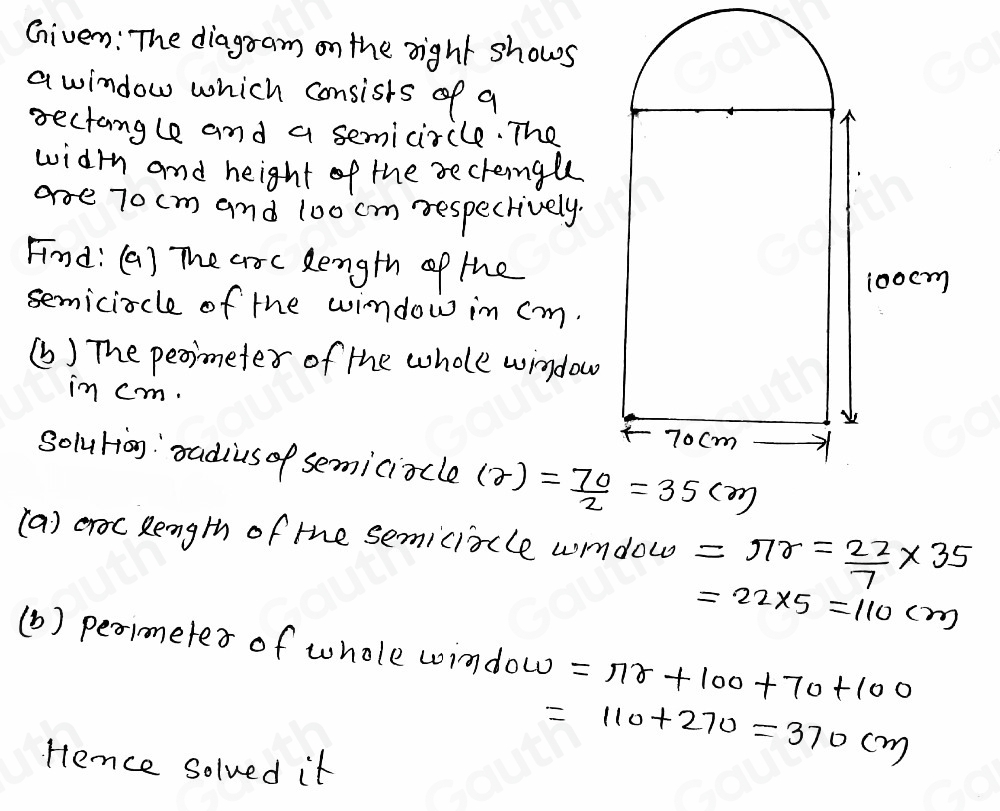 Given: The diagram on the right shows
a window which consists of a
rectangle and a semicircle. The
width and height of the rectangle
are 70 cm and 100 cm respectively.
Find: (a) The arc length of the
semicircle of the window in cm.
(b) The perimeter of the whole window
in cm.
100cm
70cm
Solution: radius of semicircle (r) = 70/2 = 35 cm
(a) arc length of the semicircle window = πr = 22/7 × 35
= 22×5 = 110 cm
(b) perimeter of whole window = πr + 100 + 70 + 100
= 110 + 270 = 370 cm
Hence solved it
Gauth